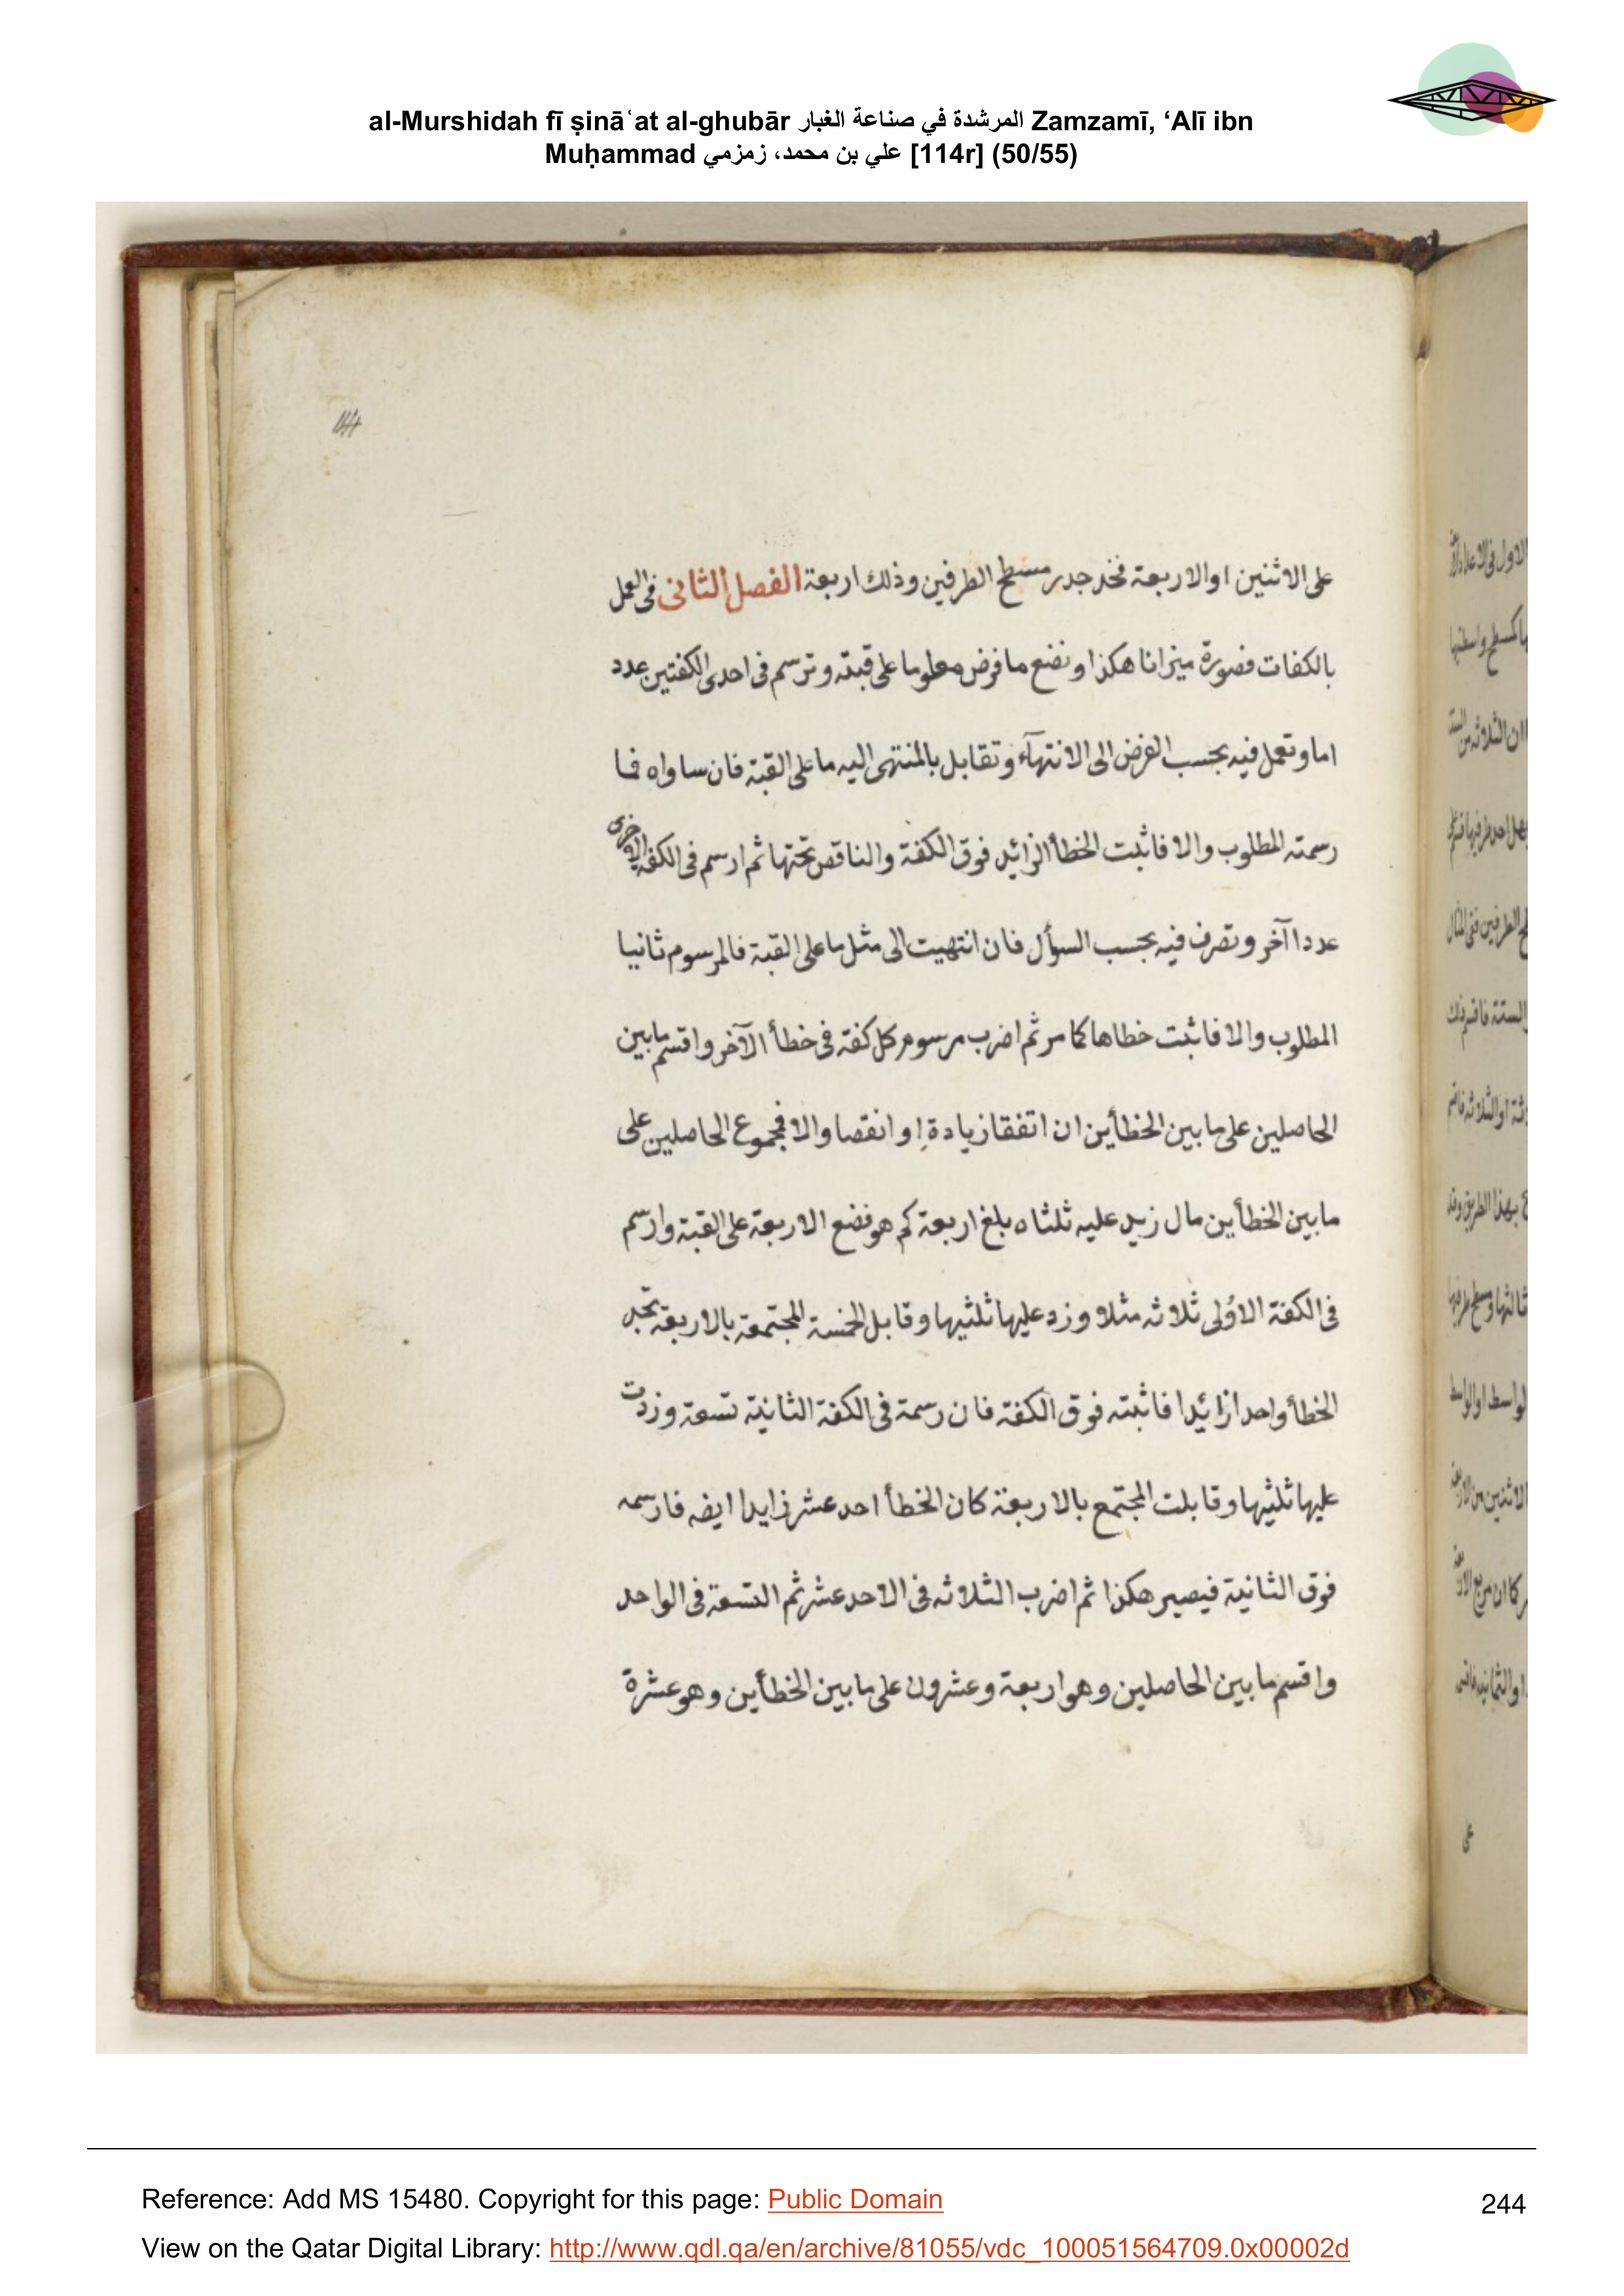 al-Murshidah fī ṣināʿat al-ghubār المرشدة في صناعة الغبار Zamzamī, ‘Alī ibn
Muḥammad علي بن محمد، زمزمي [114r] (50/55)
114
على الاثنين او الاربعة فخد جدر مسطح الطرفين وذلك اربعة الفصل الثانى فى العمل
بالكفات فصورة ميزانا هكذا ونضع ما فرض معلوما على قبته وترسم فى احدى الكفتين عدد
اما وتعمل فيه بحسب الفرض الى الانتهآء وتقابل بالمنتهى اليه ما على القبة فان ساواه فما
رسمته المطلوب والا فاثبت الخطأ الزائد فوق الكفة والناقص تحتها ثم ارسم فى الكفة الاخرى
عددا آخر وتصرف فيه بحسب السوأل فان انتهيت الى مثل ما على القبة فالمرسوم ثانيا
المطلوب والا فاثبت خطاها كما مر ثم اضرب مرسوم كل كفة فى خطأ الآخر واقسم ما بين
الحاصلين على ما بين الخطأين ان اتفقا زيادة او انقصا والا فمجموع الحاصلين على
ما بين الخطأين مال زيد عليه ثلثاه بلغ اربعة كم هو فضع الاربعة على القبة وارسم
فى الكفة الاولى ثلاثه مثلا وزد عليها ثلثيها وقابل الخمسة المجتمعة بالاربعة تجد
الخطأ واحدا زائدا فاثبته فوق الكفة فان رسمة فى الكفة الثانية تسعة وزدت
عليها ثلثيها وقابلت المجتمع بالاربعة كان الخطأ احد عشر زايدا ايضه فارسمه
فوق الثانية فيصير هكذا ثم اضرب الثلاثه فى الاحد عشر ثم التسعة فى الواحد
واقسم ما بين الحاصلين وهو اربعة وعشرون على ما بين الخطأين وهو عشرة
Reference: Add MS 15480. Copyright for this page: Public Domain
244
View on the Qatar Digital Library: http://www.qdl.qa/en/archive/81055/vdc_100051564709.0x00002d